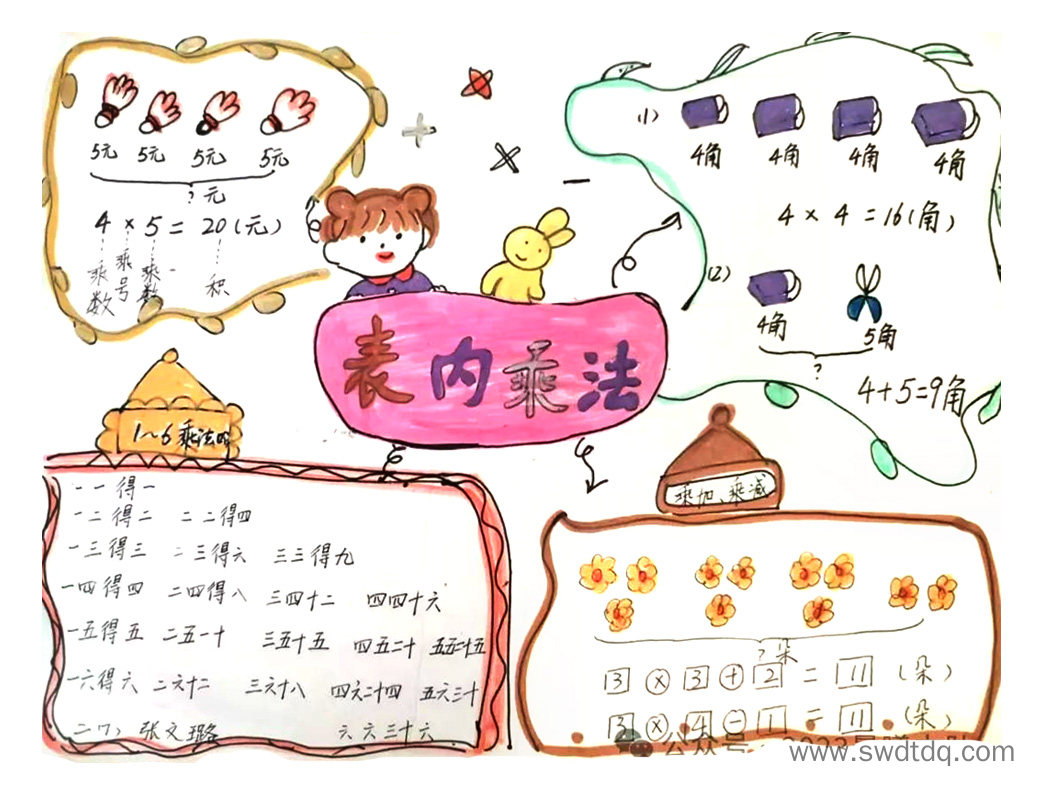 5元 5元 5元 5元
? 元
4 × 5 = 20(元)
乘数 乘号 乘数 积
(1)
4角 4角 4角 4角
4 × 4 = 16(角)
(2)
4角 5角
?
4+5=9角
表内乘法
1~6乘法
一一得一
一二得二 二二得四
一三得三 二三得六 三三得九
一四得四 二四得八 三四十二 四四十六
一五得五 二五一十 三五十五 四五二十 五五二十五
一六得六 二六十二 三六十八 四六二十四 五六三十
二(7) 张文璐 六六三十六
乘加、乘减
? 朵
3 × 3 + 2 = 11 (朵)
3 × 4 - 1 = 11 (朵)
公众号
www.swdtdq.com